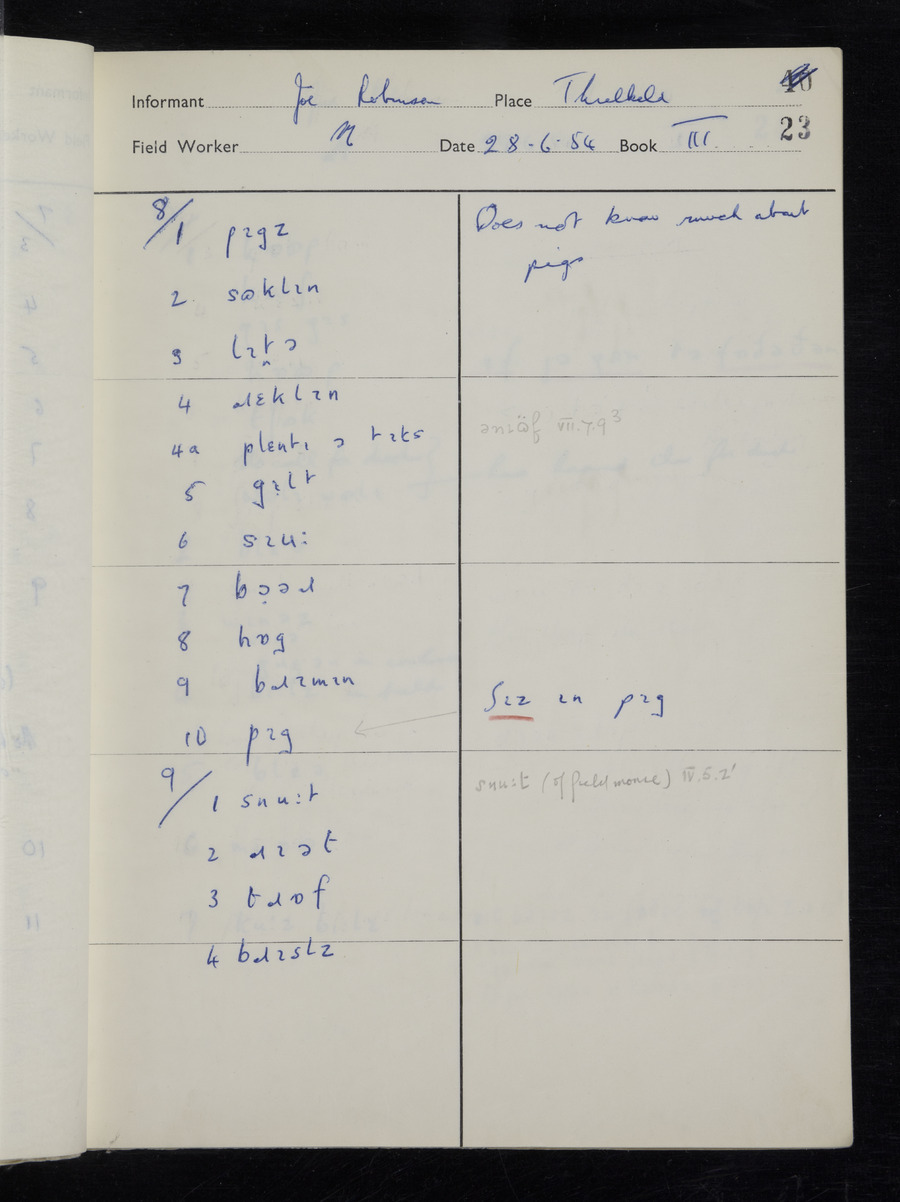 Informant Joe Robinson Place Threlkeld
23
Field Worker N Date 28-6-54 Book III
8/1 pɪgz
Does not know much about
pigs
2. sɒklɪn
3 lɪt̬ə
4 ɹɛklɪn
4a plenti ə tɪts
ənɪöf VII.7.9³
5 gɪlt
6 sɪu:
7 bɔəɹ
8 hɒg
9 bɹɪmɪn
ʃɪz ɪn pɪg
10 pɪg
9/1 snu:t
snu:t (of field mouse) IV.5.2'
2 ɹɪət
3 tɹɒf
4 bɹɪslz